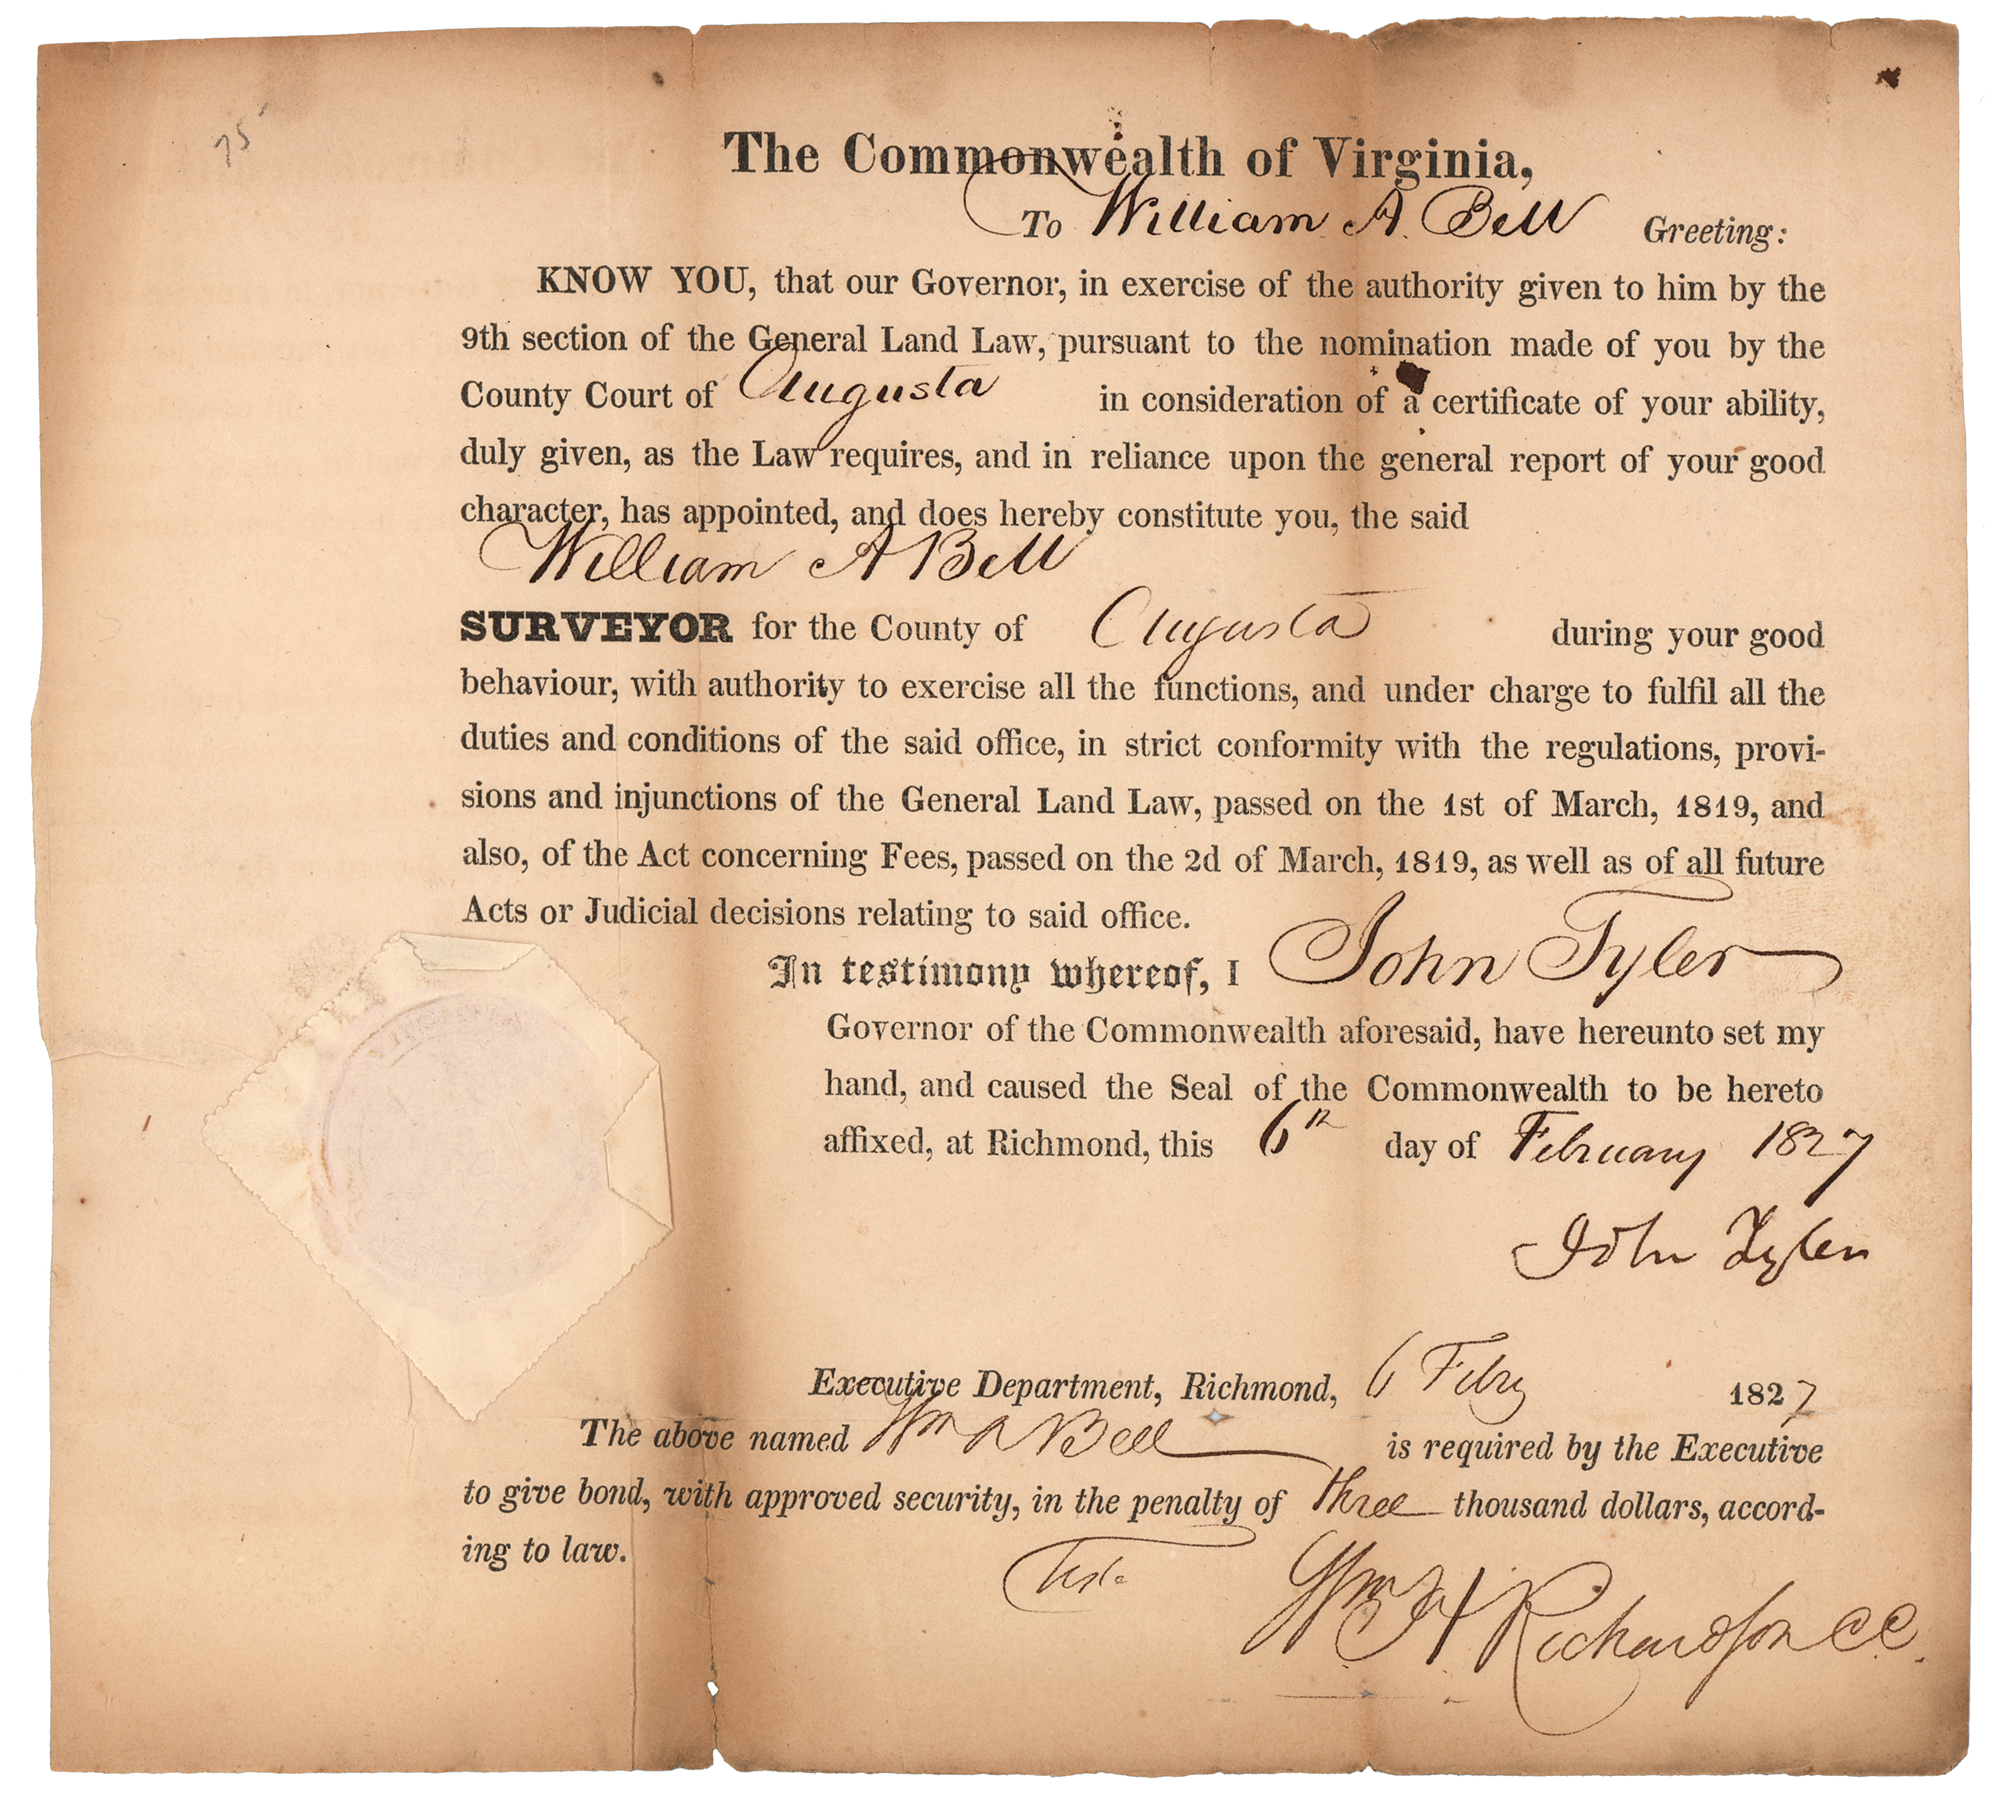 75
The Commonwealth of Virginia,
To William A. Bell Greeting:
KNOW YOU, that our Governor, in exercise of the authority given to him by the
9th section of the General Land Law, pursuant to the nomination made of you by the
County Court of Augusta in consideration of a certificate of your ability,
duly given, as the Law requires, and in reliance upon the general report of your good
character, has appointed, and does hereby constitute you, the said
William A Bell
SURVEYOR for the County of Augusta during your good
behaviour, with authority to exercise all the functions, and under charge to fulfil all the
duties and conditions of the said office, in strict conformity with the regulations, provi-
sions and injunctions of the General Land Law, passed on the 1st of March, 1819, and
also, of the Act concerning Fees, passed on the 2d of March, 1819, as well as of all future
Acts or Judicial decisions relating to said office.
In testimony whereof, I John Tyler
Governor of the Commonwealth aforesaid, have hereunto set my
hand, and caused the Seal of the Commonwealth to be hereto
affixed, at Richmond, this 6th day of February 1827
John Tyler
Executive Department, Richmond, 6 Feby 1827
The above named Wm A Bell is required by the Executive
to give bond, with approved security, in the penalty of three thousand dollars, accord-
ing to law.
Teste
Wm H Richardson CC.